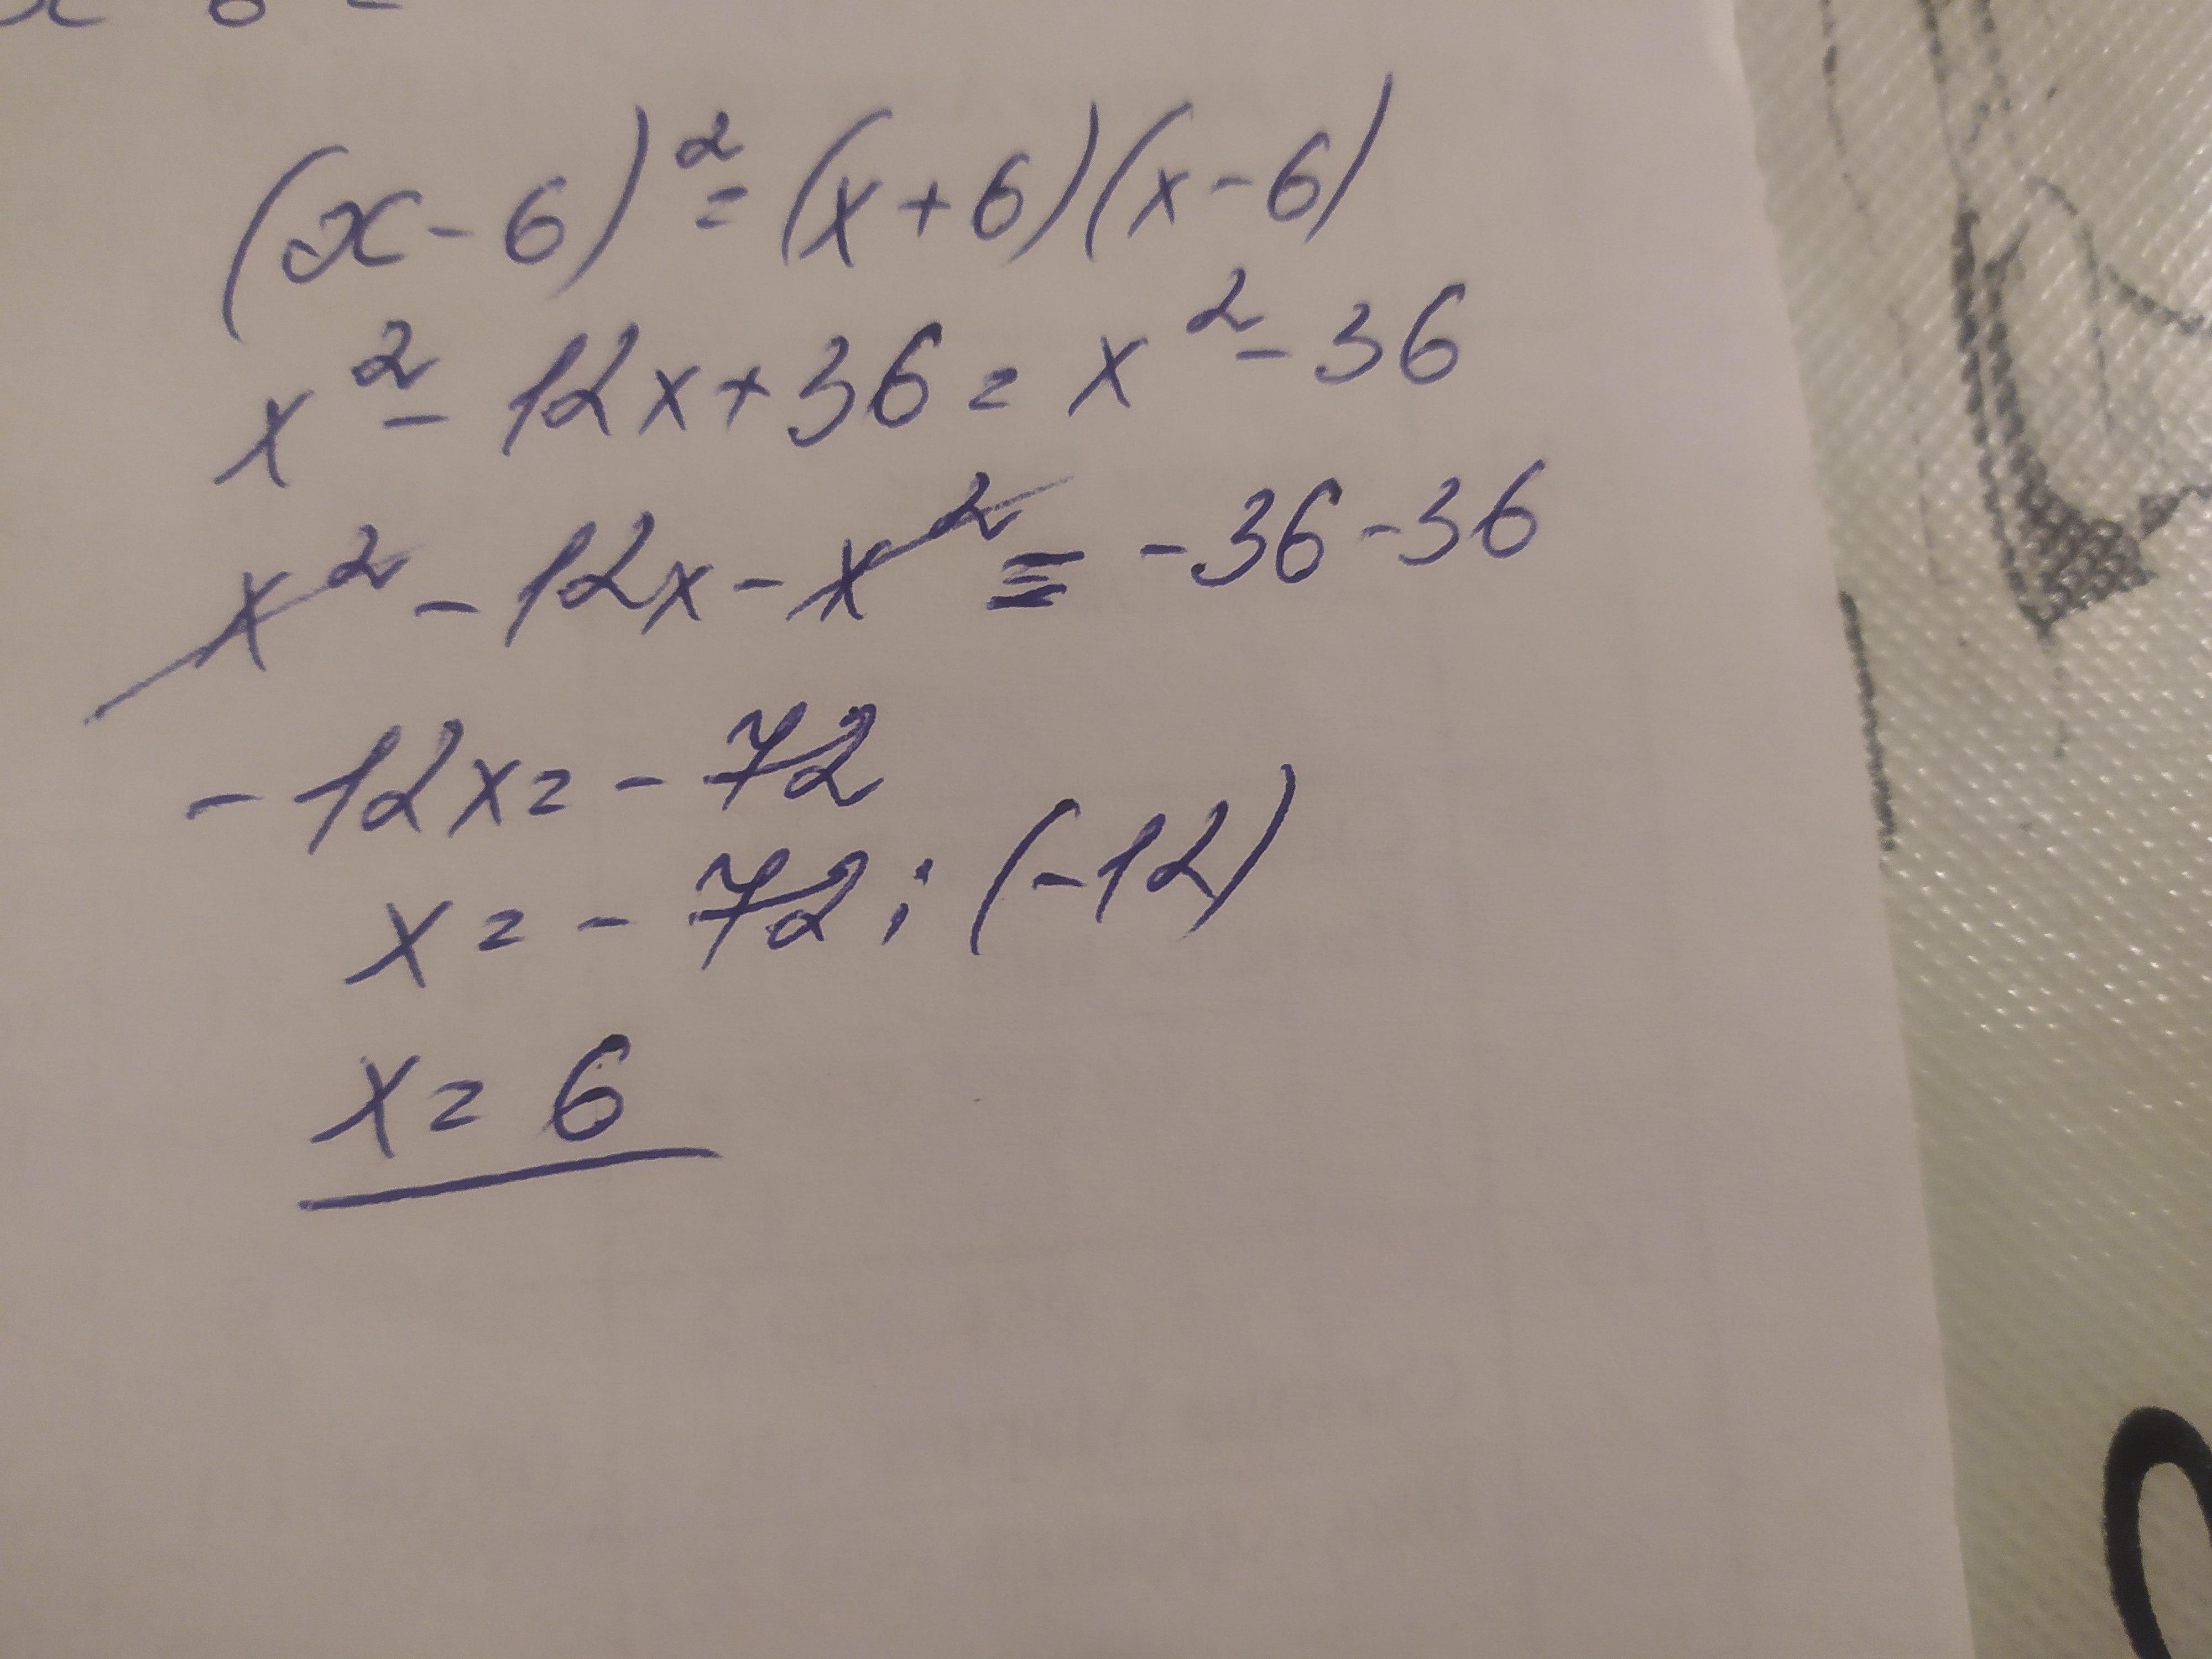 (x-6)²=(x+6)(x-6)
x²-12x+36=x²-36
x²-12x-x²=-36-36
-12x=-72
x=-72:(-12)
x=6